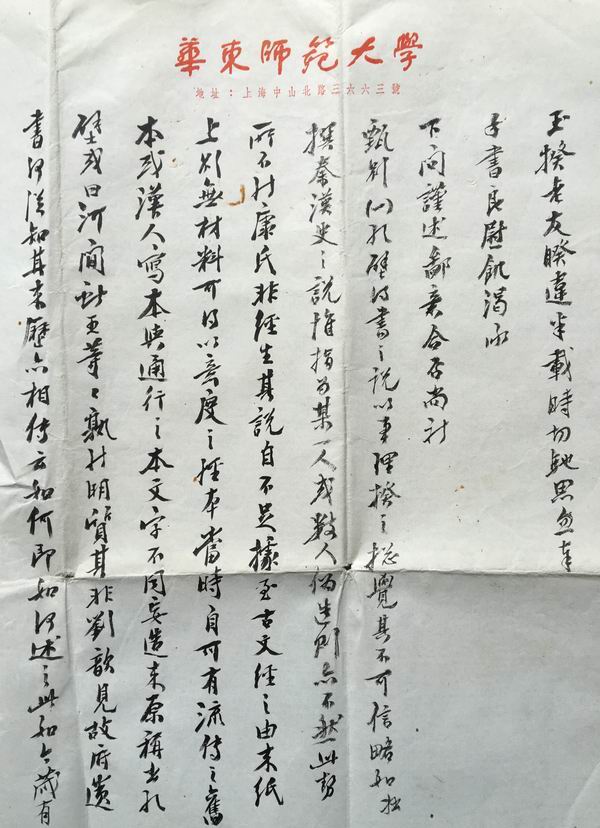 華東師範大學
地址：上海中山北路三六六三號
玉揆老友睽違半載時切馳思忽奉
手書良慰飢渴承
下問謹述鄙衷合否尚祈
甄別心孔壁得書之說以事理揆之總覺其不可信略如拙
撰秦漢史之說惟指為某一人或數人偽造則亦不然此勢
所不行康氏非經生其說自不足據至古文經之由來紙
上別無材料可得以意度之經本當時自可有流傳之舊
本或漢人寫本與通行之本文字不同妄造來原稱出孔
壁或曰河間獻王等等孰行明質其非劉歆見故府遺
書何從知其來歷亦相傳云如何即如何述之此如今歲有